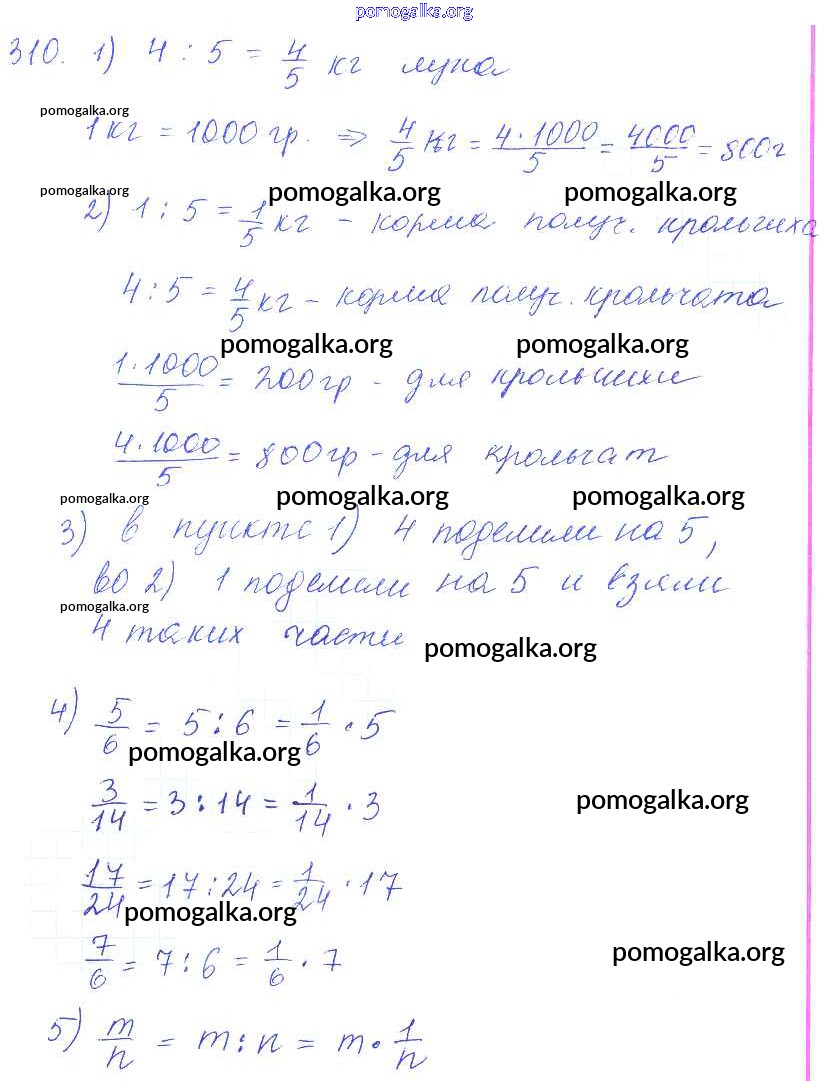 pomogalka.org
310. 1) 4 : 5 = 4/5 кг лука
pomogalka.org
1 кг = 1000 гр. ⇒ 4/5 кг = 4·1000/5 = 4000/5 = 800г
pomogalka.org pomogalka.org pomogalka.org
2) 1 : 5 = 1/5 кг - корма получ. крольчиха
4 : 5 = 4/5 кг - корма получ. крольчата
pomogalka.org pomogalka.org
1·1000/5 = 200 гр - для крольчихи
4·1000/5 = 800 гр - для крольчат
pomogalka.org pomogalka.org pomogalka.org
3) в пункте 1) 4 поделили на 5,
во 2) 1 поделили на 5 и взяли
pomogalka.org
4 таких части
pomogalka.org
4) 5/6 = 5 : 6 = 1/6 · 5
pomogalka.org
3/14 = 3 : 14 = 1/14 · 3
pomogalka.org
17/24 = 17 : 24 = 1/24 · 17
pomogalka.org
7/6 = 7 : 6 = 1/6 · 7
pomogalka.org
5) m/n = m : n = m · 1/n